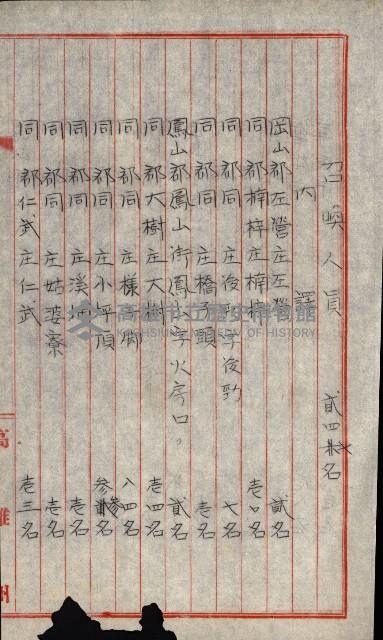 召喚人員 貳四名
內譯
岡山郡左營庄左營 貳名
同郡楠梓庄楠梓 壱〇名
同郡同庄後勁字後勁 七名
同郡同庄橋子頭 壱名
鳳山郡鳳山街鳳山字火房口 貳名
同郡大樹庄大樹 壱四名
同郡同庄樣脚 八四名
同郡同庄小坪頂 参名
同郡同庄溪埔 壱名
同郡同庄姑婆寮 壱名
同郡仁武庄仁武 壱三名
高雄州
高雄市立歷史博物館
KAOHSIUNG MUSEUM OF HISTORY